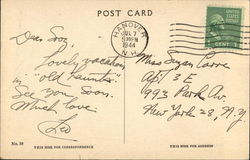 POST CARD
HANOVER
JUL 7
5 PM
1944
N.H.
1 CENT 1
Dear Son
Lovely vacation
in "old haunts"
See you soon.
Much love
Leo
Miss Susan
Apt 3 E
993 Park Av
New York 28, N.Y
No. 39
THIS SIDE FOR CORRESPONDENCE
THIS SIDE FOR ADDRESS